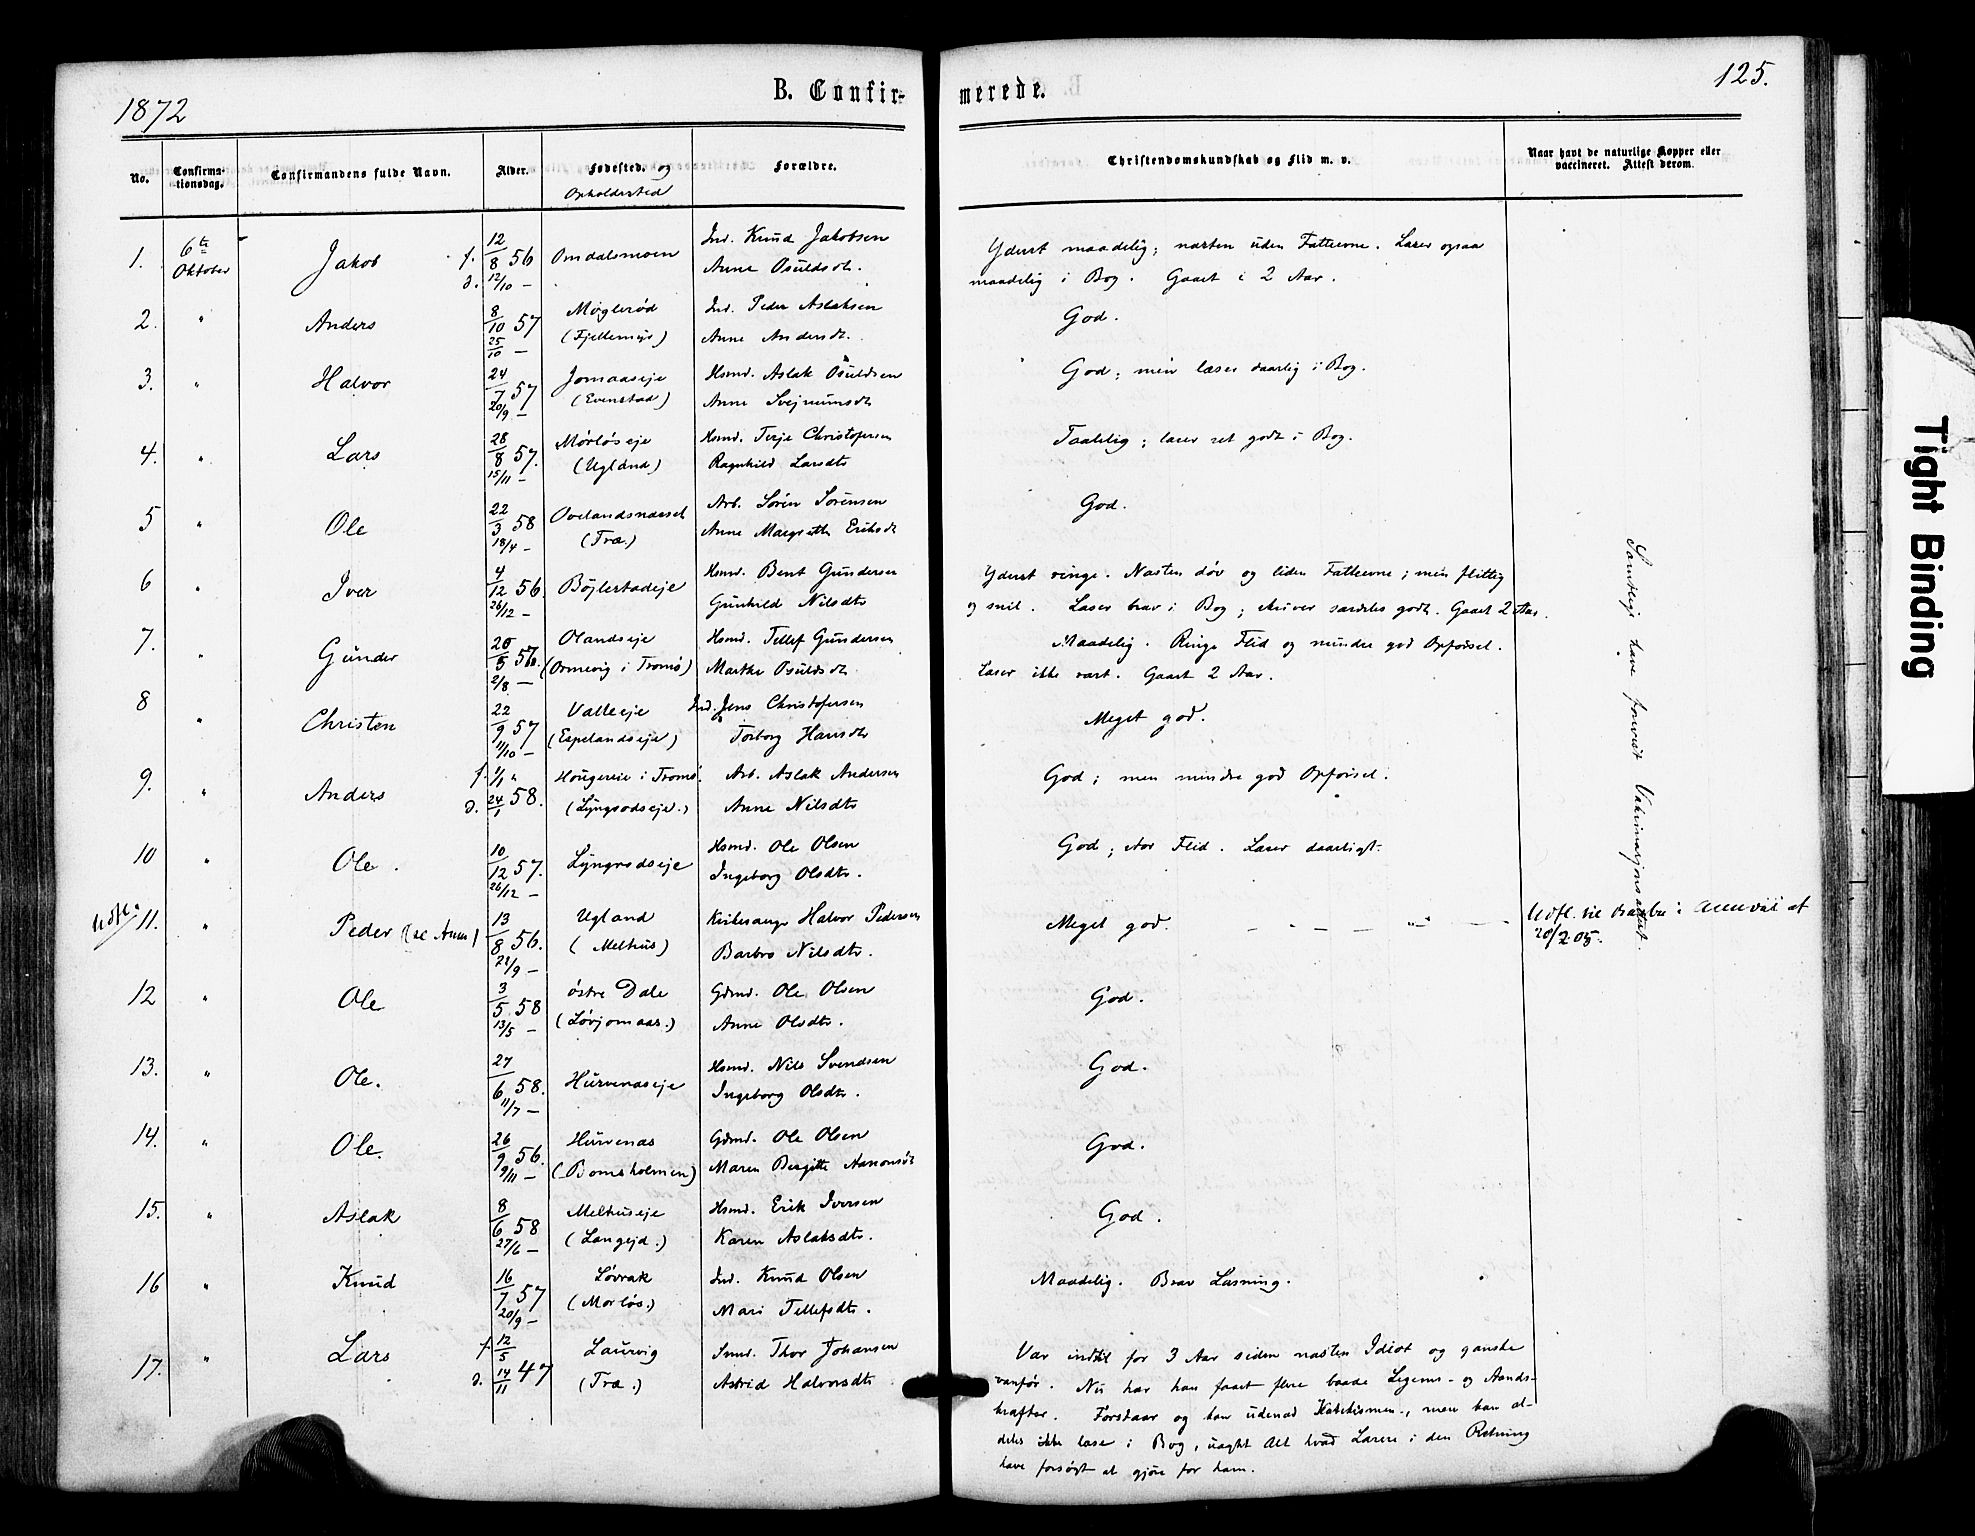 1872
B. Confir-
merede.
125.
No.
Confirma-
tionsdag.
Confirmandens fulde Navn.
Alder.
Fødested. og
Opholdersted
Forældre.
Christendomskundskab og Flid m. v.
Naar havt de naturlige Kopper eller
vaccineret. Attest derom.
1. 6te Oktober Jakob f. 12/8 56 d. 12/10 – Omdalsmoen Ind. Knud Jakobsen
Anne Osuldsdt.
Yderst maadelig; næsten uden Fatteevne. Læser ogsaa
maadelig i Bog. Gaaet i 2 Aar.
2. " Anders 8/10 57 25/10 – Møglerød Ind. Peder Aslaksen
(Fjellemyr) Anne Andersdt.
God.
3. " Halvor 24/7 57 20/9 – Jomaaseje Hsmd. Aslak Osuldsen
(Evenstad) Anne Svejnumsdt
God; men læser daarlig i Bog.
4. " Lars 28/8 57. 15/11 – Mørløseje Hsmd. Terje Christofersen
(Ugland) Ragnhild Larsdtr
Taalelig; læser ret godt i Bog.
5 " Ole 22/3 58 18/4 – Ovelandsnæsset Arb. Søren Sørensen
(Træ.) Anne Margrethe Eriksdt
God.
6 " Iver 4/12 56. 26/12 – Bøjlestadeje Hsmd. Bent Gundersen
Gunhild Nilsdtr
Yderst ringe. Næsten døv og liden Fatteevne; men flittig
og snil. Læser brav i Bog; skriver særdeles godt. Gaaet 2 Aar.
7. " Gunder 20/5 56. 2/8 – Olandseje Hsmd. Tellef Gundersen
(Ormevig i Tromø) Marthe Osuldsdt.
Maadelig. Ringe Flid og mindre god Opførsel.
Læser ikke rart. Gaaet 2 Aar.
8 " Christen 22/9 57 11/10 – Valleeje Ind. Jens Christofersen
(Espelandseje) Torborg Hansdtr
Meget god.
9. " Anders f. 1/1 " d. 24/1 58. Hougereie i Tromø. Arb. Aslak Andersen
(Lyngrodseje.) Anne Nilsdtr
God; men mindre god Opførsel.
10 " Ole. 10/12 57. 26/12 – Lyngrodseje Hsmd. Ole Olsen
Ingeborg Olsdtr.
God; stor Flid. Læser daarligt.
Udfl. 11. " Peder (se Anm) 13/8 56. 22/9 – Ugland Kirkesanger Halvor Pedersen
(Melhus) Barbro Nilsdtr.
Meget god. – – – – " –
Udfl. til Barbu i
20/2 05.
12 " Ole 3/5 58 13/5 – østre Dale Gdmd. Ole Olsen
(Løvjomaas.) Anne Olsdtr.
God.
13. " Ole. 27/6 58. 11/7 – Hurvenaseje Hsmd. Nils Svendsen
Ingeborg Olsdtr.
God.
14. " Ole. 26/9 56. 9/11 – Hurvenas Gdmd. Ole Olsen
(Bomsholmen) Maren Birgitte Aanonsdt
God.
15. " Aslak 8/6 58 27/6 – Melhuseje Hsmd. Erik Iversen
(Langejd.) Karen Aslaksdtr.
God.
16 " Knud 16/7 57 20/9 – Løvrak Ind. Knud Olsen
(Mørløs.) Mari Tellefsdtr.
Maadelig. Brav Læsning.
17. " Lars f. 12/5 d. 14/11 47 Laurvig Smd. Thor Johansen
(Træ.) Astrid Halvorsdtr
Var indtil for 3 Aar siden næsten Idiot og ganske
vanfør. Nu har han faaet flere baade Legems- og Aands-
kræfter. Forstaar og kan udenad Katekismen, men kan al-
deles ikke læse i Bog, uagtet Alt hvad Lærere i den Retning
have forsøgt at gjøre for ham.
Samtlige have forevist Vakinasjonsattest.
Tight Binding